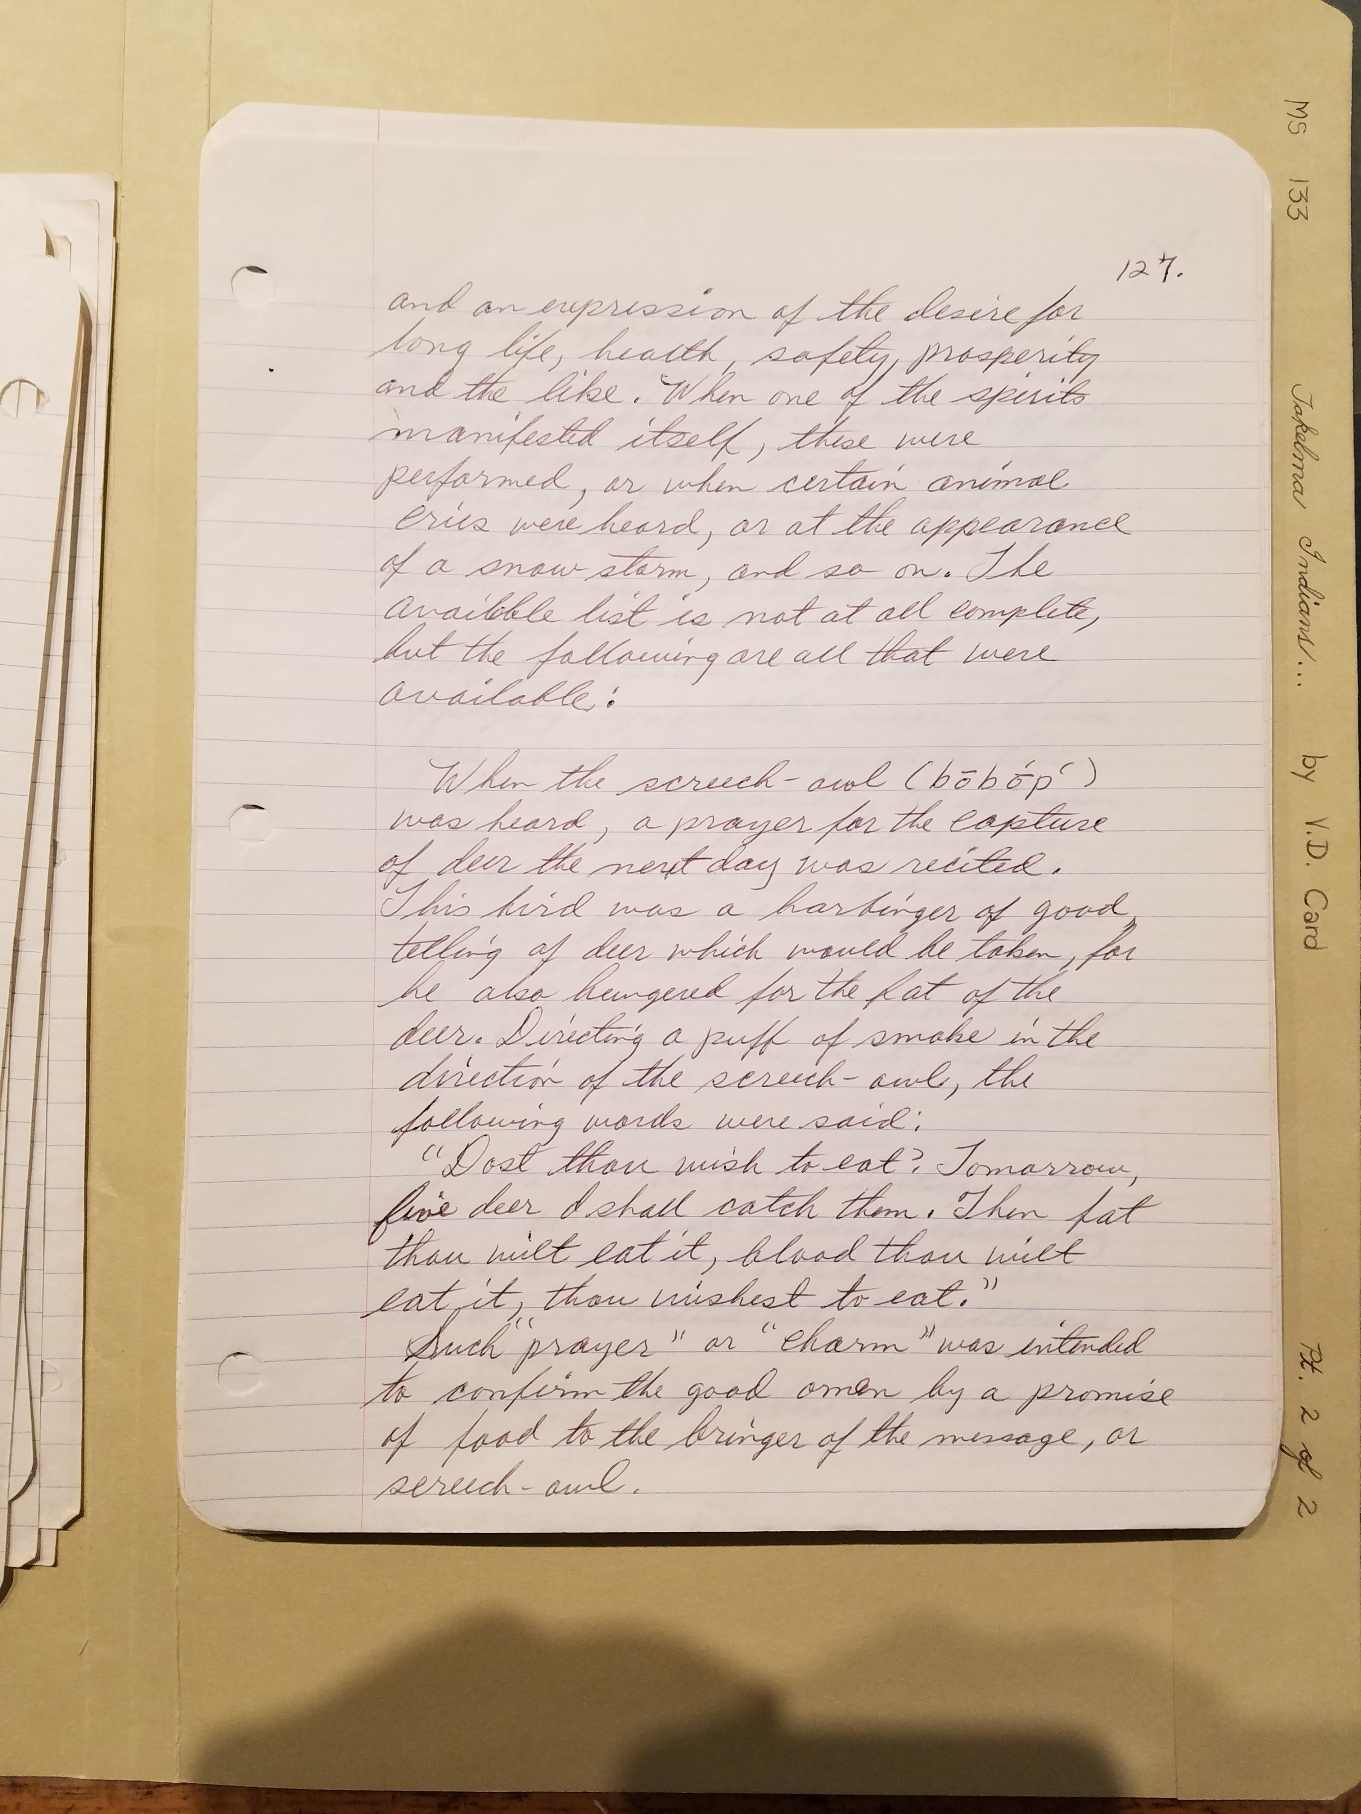 127.
and an expression of the desire for
long life, health, safety, prosperity
and the like. When one of the spirits
manifested itself, these were
performed, or when certain animal
cries were heard, or at the appearance
of a snow storm, and so on. The
availible list is not at all complete,
but the following are all that were
available:
When the screech-owl (bōbṓpʻ)
was heard, a prayer for the capture
of deer the next day was recited.
This bird was a harbinger of good,
telling of deer which would be taken, for
he also hungered for the fat of the
deer. Directing a puff of smoke in the
direction of the screech-owl, the
following words were said:
"Dost thou wish to eat? Tomorrow,
five deer I shall catch them. Then fat
thou wilt eat it, blood thou wilt
eat it, thou wishest to eat."
Such "prayer" or "charm" was intended
to confirm the good omen by a promise
of food to the bringer of the message, or
screech-owl.
MS 133 Takelma Indians... by V.D. Card Pt. 2 of 2